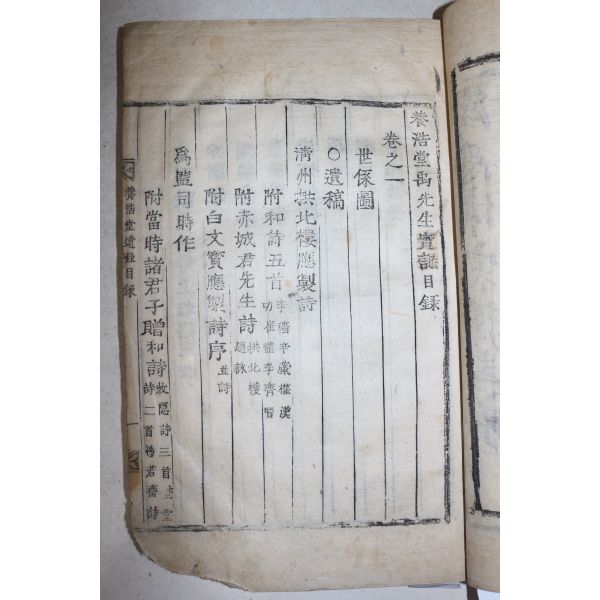 養浩堂禹先生實記目錄
卷之一
世係圖
○遺稿
淸州拱北樓應製詩
附和詩五首 李穡 辛蕆 權漢功 崔瀣 李齊賢
附赤城君先生詩 拱北樓題詠
附白文寶應製詩序 並詩
爲監司時作
附當時諸君子贈和詩 牧隱詩三首 堂詩二首 楊若齋詩
養浩堂遺錄目錄
一